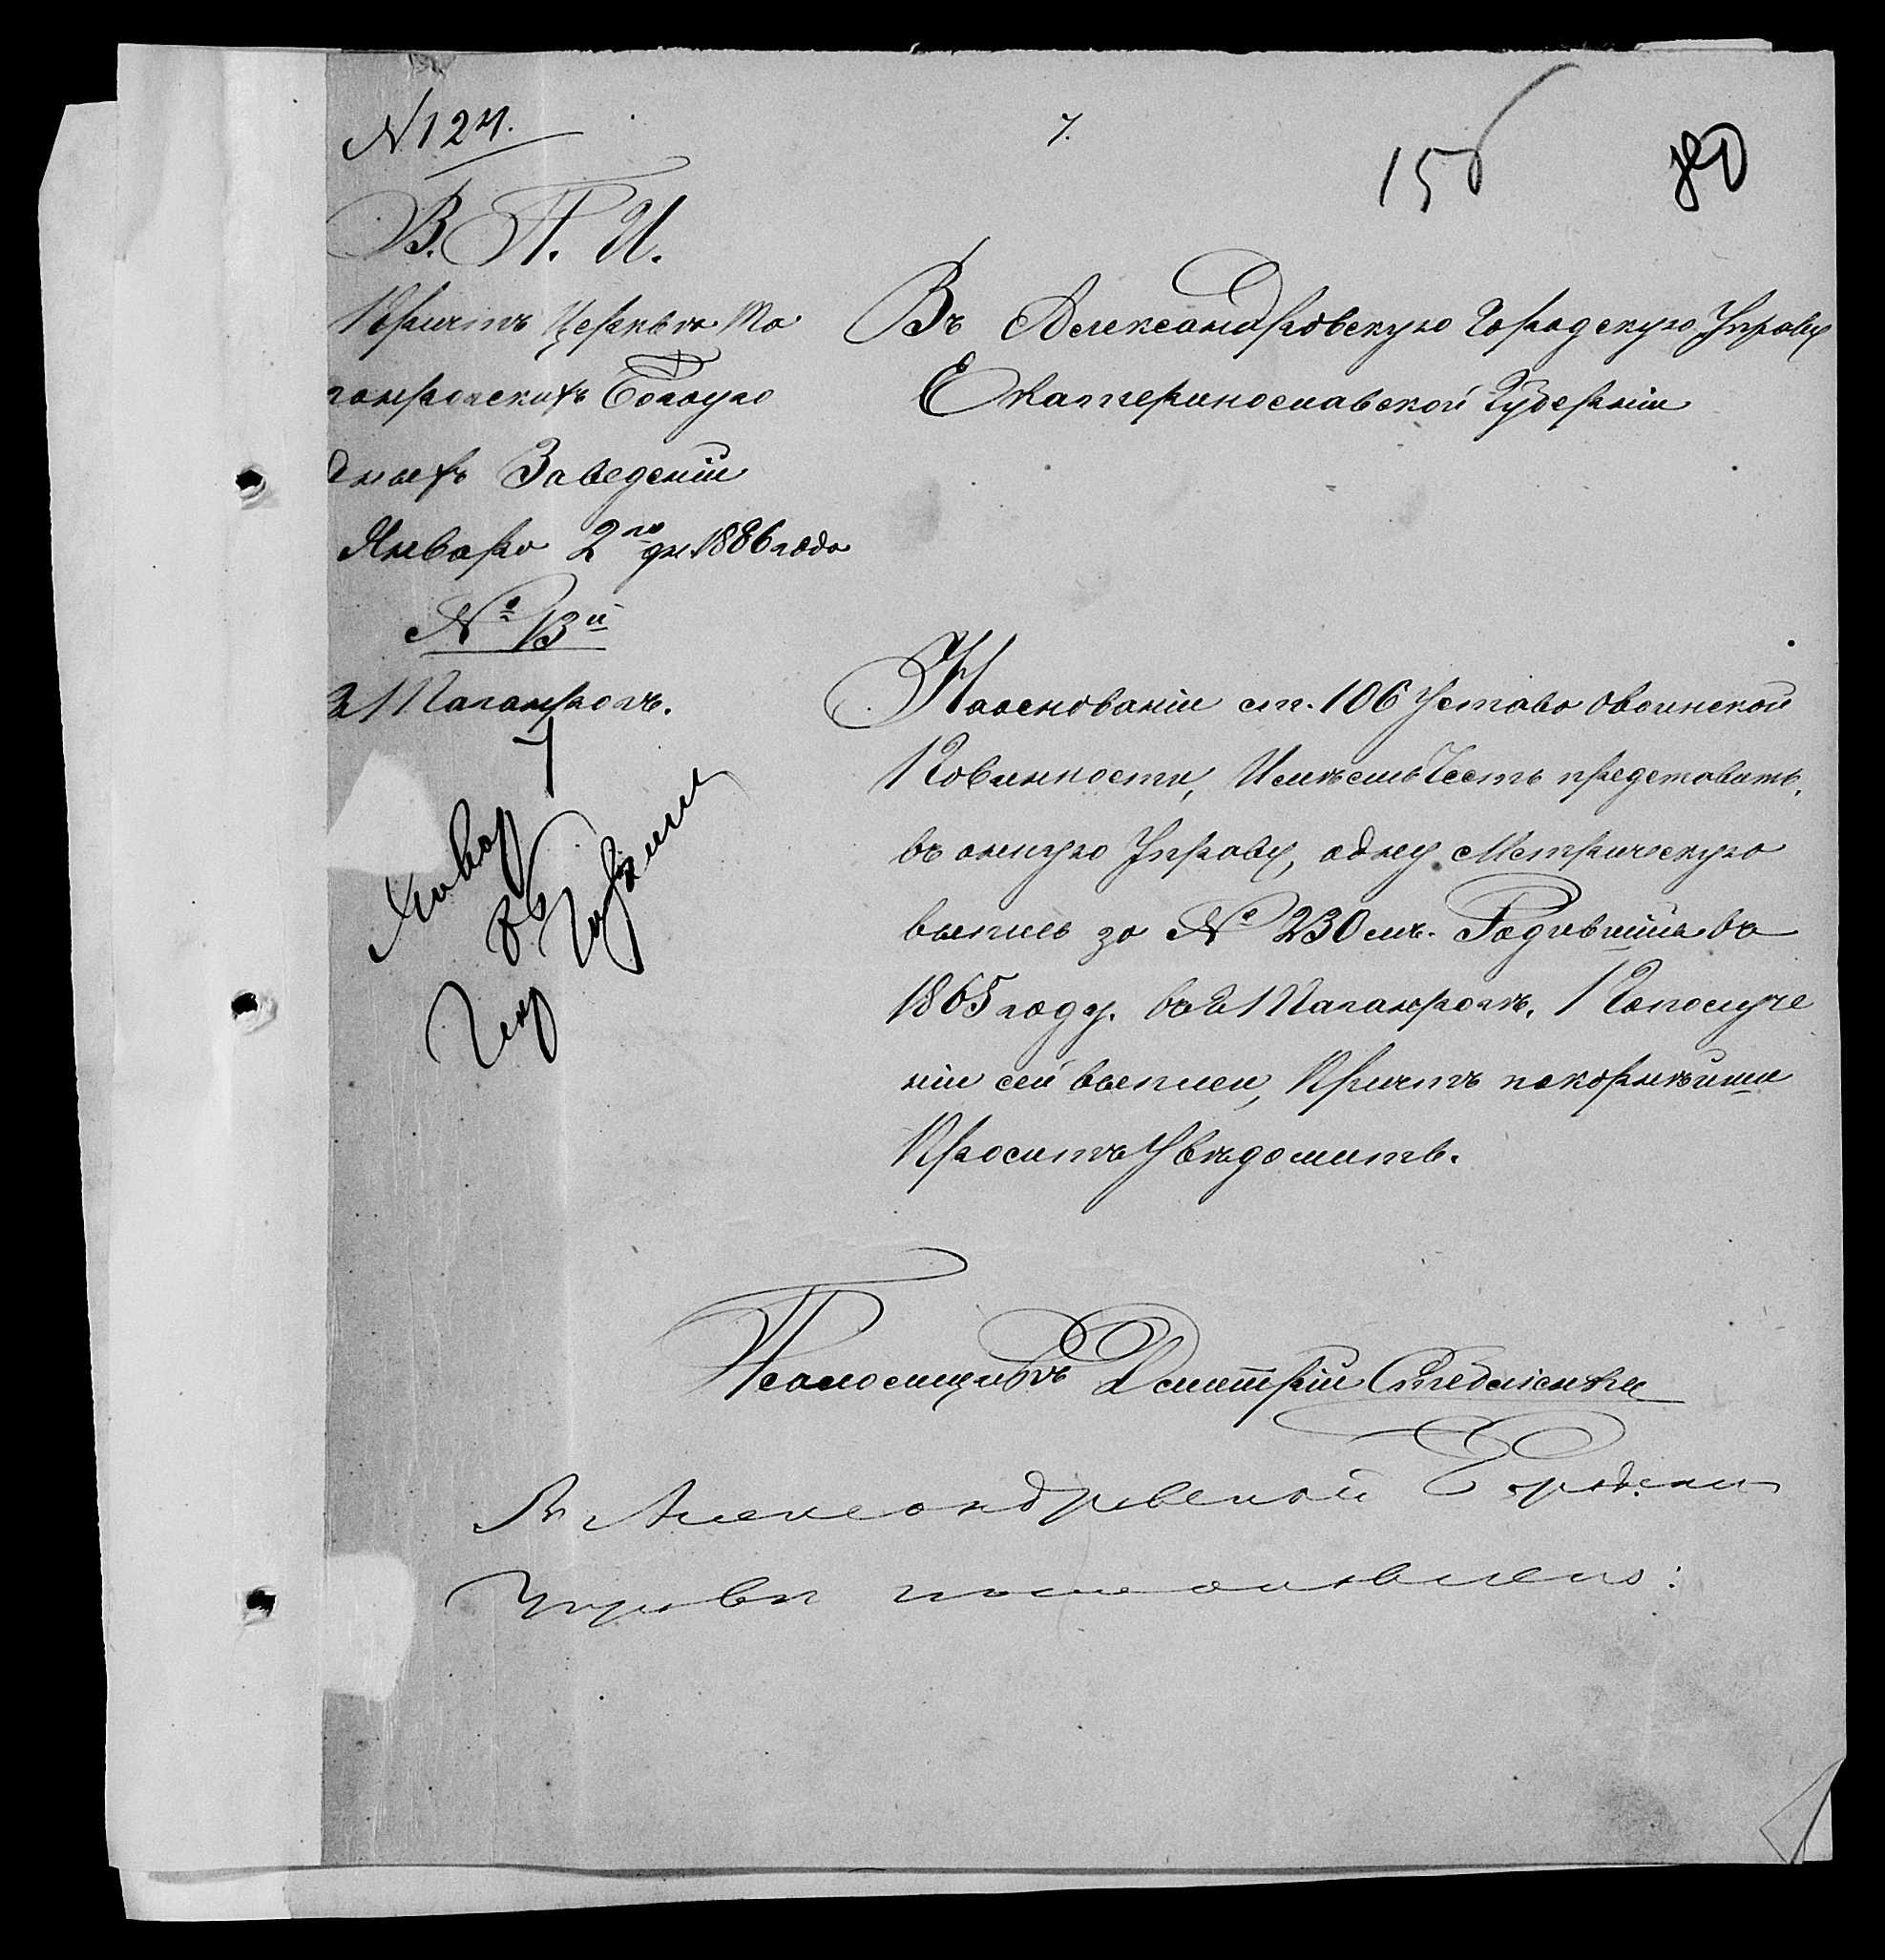 N 124.
7.
156
80
В. П. И.
Причтъ Церкви Та
ганрогскихъ Богоуго
дныхъ Заведеній
Января 2го дн. 1886 года
№ 13й
г Таганрогъ.
Въ Александровскую Городскую Управу
Екатеринославской Губерніи
На основаніи ст. 106 Устава овоинской
Повинности, Имѣемъ Честь представить
въ оную Управу, одну Метрическую
выпись за № 230мъ. Родившійся въ
1865 году. въ г Таганрогѣ. По получе
ніи сей выписи, Причтъ покорнѣйше
Проситъ Увѣдомить.
Январ
7
Псаломщикъ Дмитрій
В Александровской Городской
Управѣ